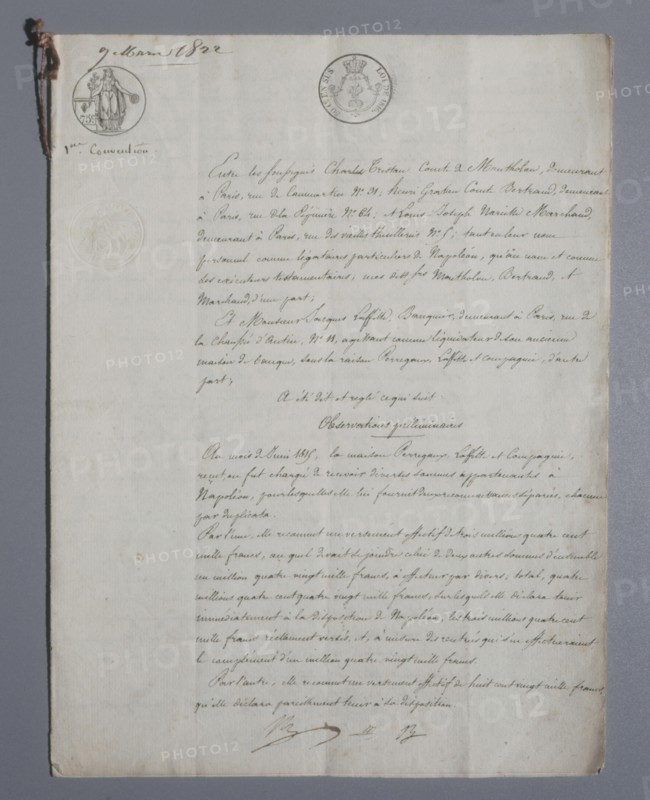 9 Mars 1822
1ère Convention.
Entre les soussignés Charles Tristan Comte de Montholon, demeurant
à Paris, rue de No. 31; henri Gratien Comte Bertrand, demeurant
à Paris, rue de la Pépinière No. 64; et Louis Joseph Narcisse Marchand,
demeurant à Paris, rue des vieilles thuilleries No. 5; tant en leur nom
personnel comme légataires particuliers de Napoléon, qu'au nom et comme
des exécuteurs testamentaires; mes dits srs Montholon, Bertrand, et
Marchand, d'une part;
Et Monsieur Jacques Laffitte, Banquier, demeurant à Paris, rue de
la Chaussée d'Antin, No. 11, agissant comme liquidateur de son ancienne
maison de banque, sous la raison Perregaux Laffitte et compagnie, d'autre
part;
A été dit et réglé ce qui suit
Observations préliminaires
Au mois de Juin 1815, la maison Perregaux, Laffitte et Compagnie,
reçut, ou fut chargée de recevoir diverses sommes appartenantes à
Napoléon, pour lesquelles elle lui fournit deux séparées, chacune
par duplicata.
Par l'une, elle reconnut un versement effectif de trois millions quatre cent
mille francs, auquel devait se joindre celui de deux autres sommes d'ensemble
un million quatre vingt mille francs, à effectuer par divers; total, quatre
millions quatre cent quatre vingt mille francs, desquels elle déclara tenir
immédiatement à la disposition de Napoléon, les trois millions quatre cent
mille francs réellement versés, et, à mesure des rentrées qui s'en effectueraient
le complément d'un million quatre vingt mille francs.
Par l'autre, elle reconnut un versement effectif de huit cent vingt mille francs,
qu'elle déclara pareillement tenir à sa disposition.
PHOTO12